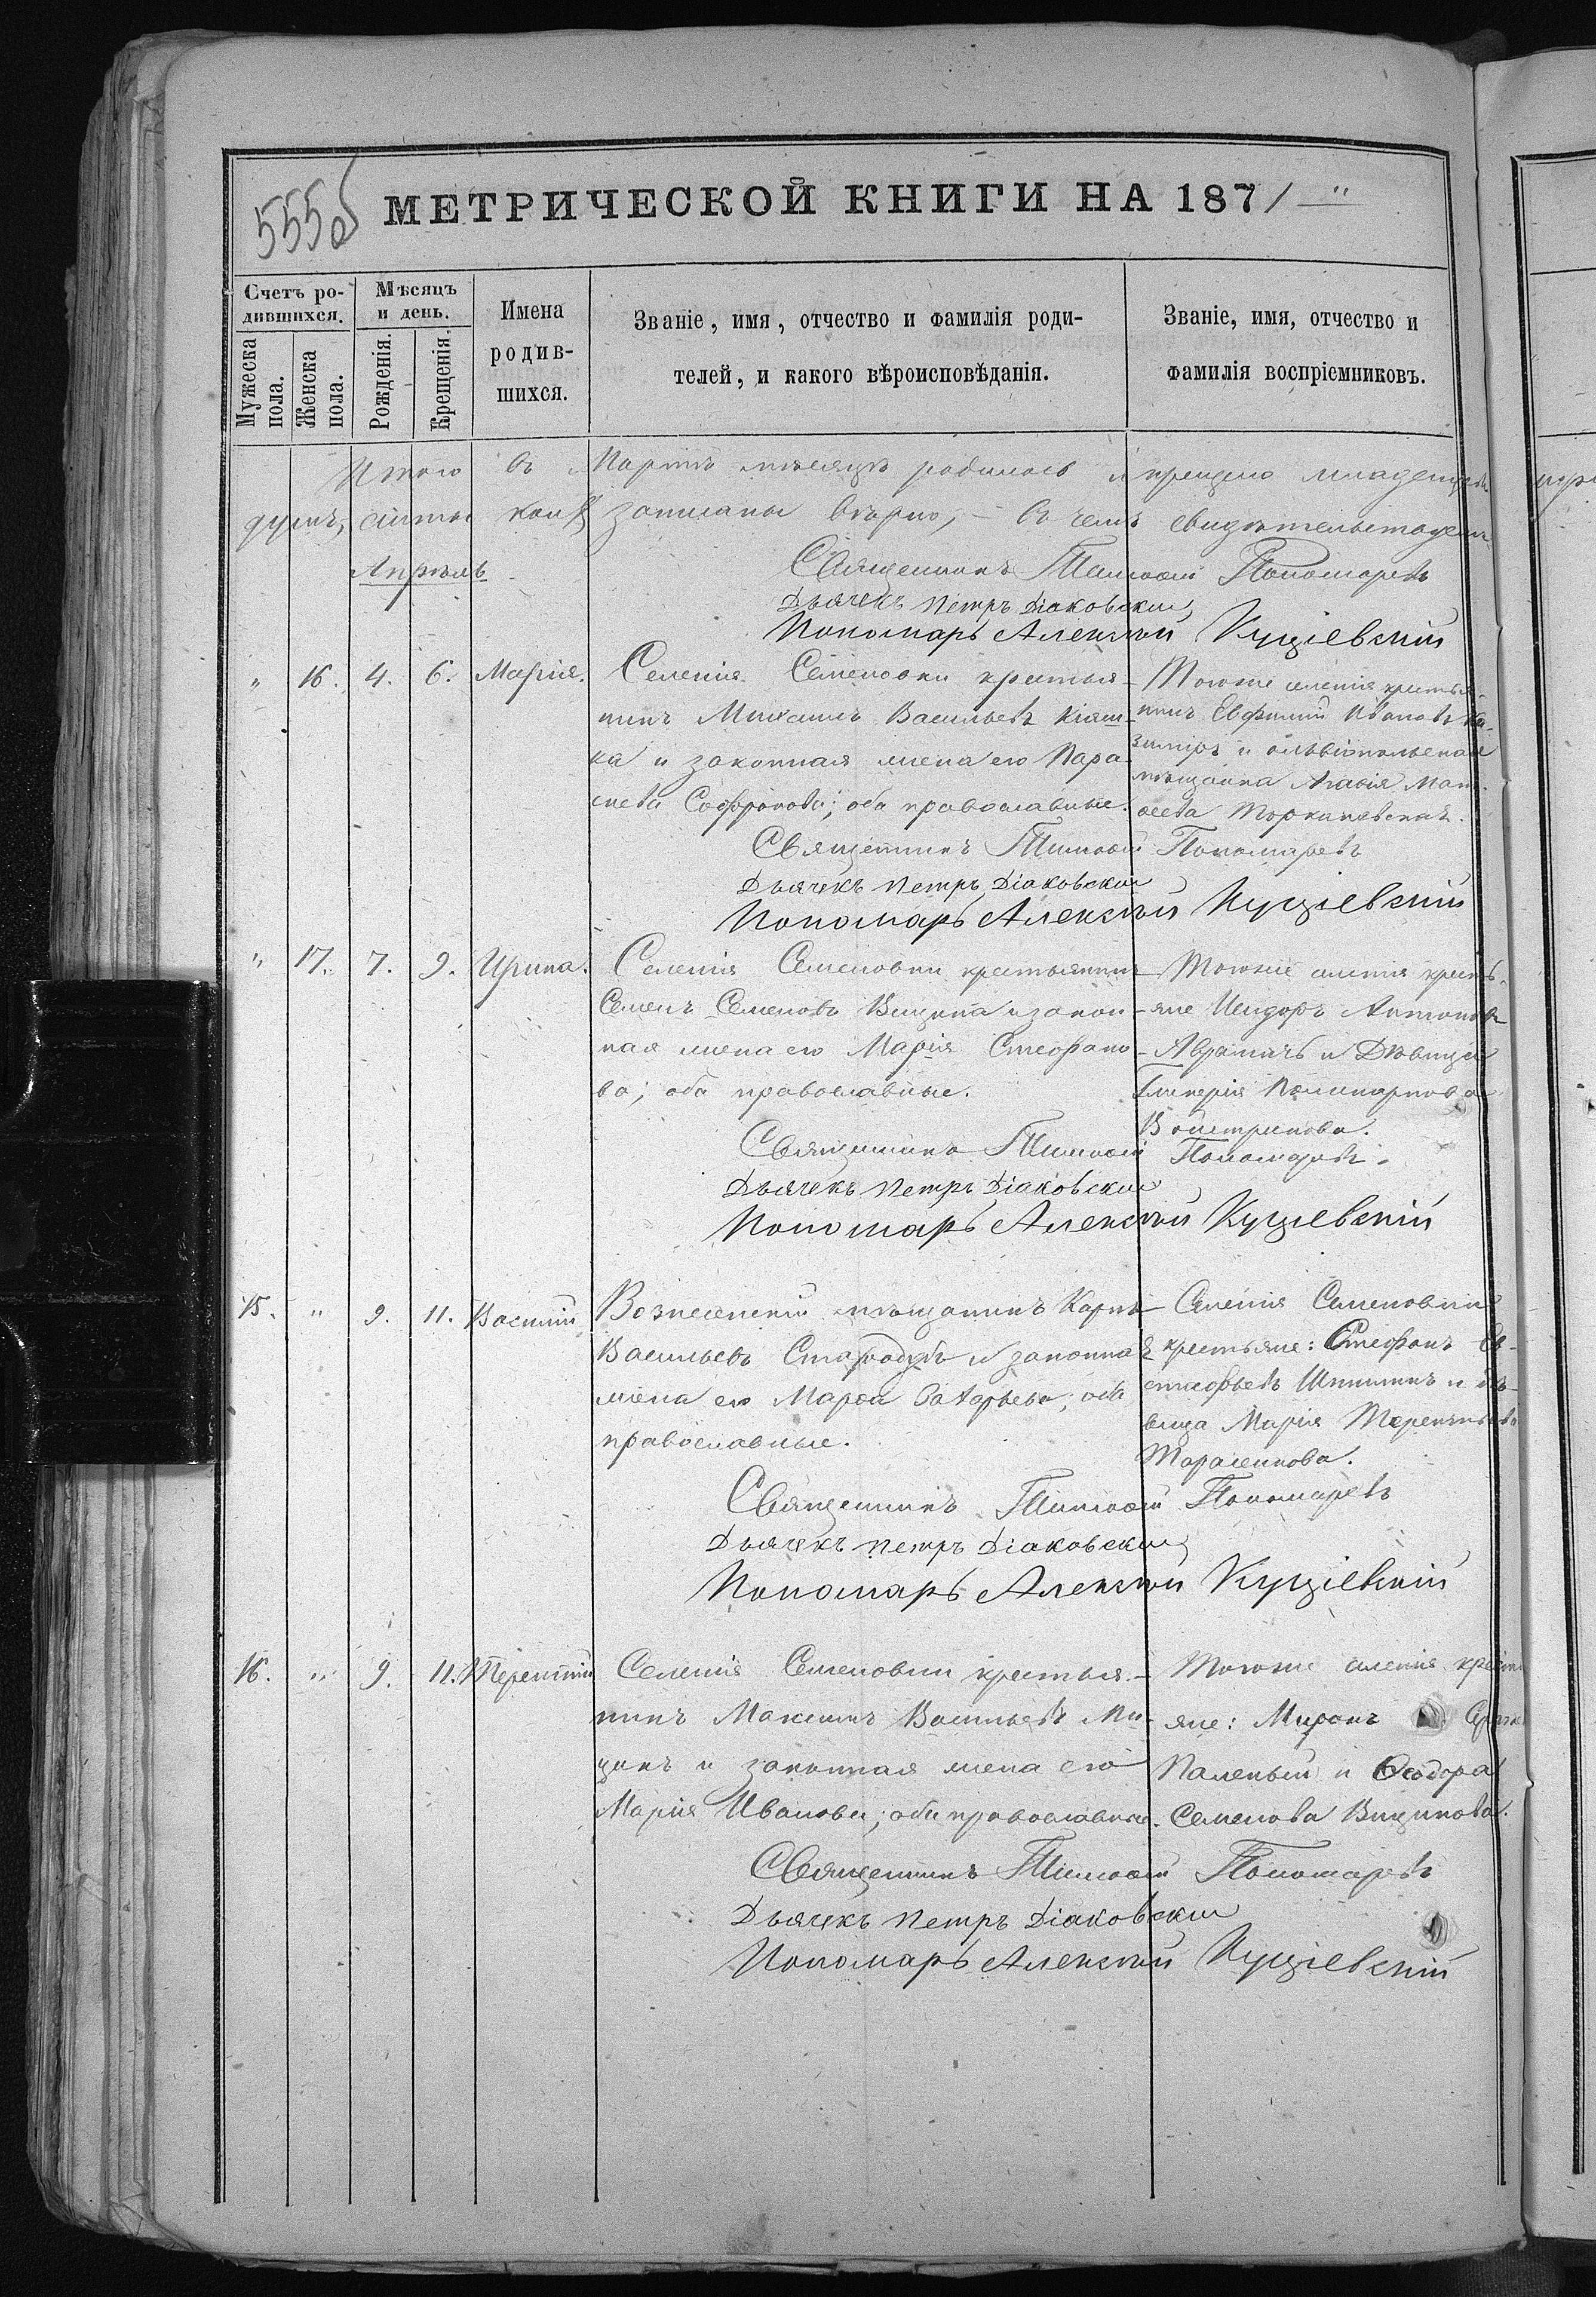 555об
МЕТРИЧЕСКОЙ КНИГИ НА 1871
Счетъ ро-
дившихся.
Мужеска
пола.
Женска
пола.
Мѣсяцъ
и день.
Рожденія.
Крещенія.
Имена
родив-
шихся.
Званіе, имя, отчество и фамилія роди-
телей, и какого вѣроисповѣданія.
Званіе, имя, отчество и
фамилія воспріемниковъ.
Итого въ Мартѣ мѣсяцѣ родилось и крещено младенцевъ
записаны вѣрно, — въ чемъ свидѣтельствуемъ
Апрѣль
Священникъ Тимоѳей Пономаревъ
Дьячекъ Петръ Діаковскій
Пономарь Алексѣй Куціевскій
" 16. 4. 6. Марія.
Селенія Семеновки крестья-
нинъ Михаилъ Васильевъ
ка и законная жена его Пара-
скева Софронова; оба православные.
Тогоже селенія крестья-
нинъ Евфимій Ивановъ Ка-
зиміръ и ольвіопольская
мѣщанка Агафія Мат-
ѳеева
Священникъ Тимоѳей Пономаревъ
Дьячекъ Петръ Діаковскій
Пономарь Алексѣй Куціевскій
" 17. 7. 9. Ирина.
Селенія Семеновки крестьянинъ
Семенъ Семеновъ Вищина и закон-
ная жена его Марія Стефано-
ва; оба православные.
Тогоже селенія кресть-
яне Исидоръ Антоновъ
Аврамичъ и Дѣвица
Гликерія Поликарпова
Вострикова.
Священникъ Тимоѳей Пономаревъ.
Дьячекъ Петръ Діаковскій
Пономарь Алексѣй Куціевскій
15. " 9. 11. Василій
Вознесенскій мѣщанинъ Карпъ
Васильевъ Стародубъ и законная
жена его Марѳа Захарьева; оба
православные.
Селенія Семеновки
крестьяне: Стефанъ Ев-
стафьевъ и дѣ-
вица Марія Терентьева
Тарасенкова.
Священникъ Тимоѳей Пономаревъ
Дьячекъ Петръ Діаковскій
Пономарь Алексѣй Куціевскій
16. " 9. 11. Терентій
Селенія Семеновки крестья-
нинъ Максимъ Васильевъ Ми-
щикъ и законная жена его
Марія Иванова; оба православные.
Тогоже селенія кресть-
яне: Миронъ
Паленый и Ѳеодора
Семенова Вищинова.
Священникъ Тимоѳей Пономаревъ
Дьячекъ Петръ Діаковскій
Пономарь Алексѣй Куціевскій